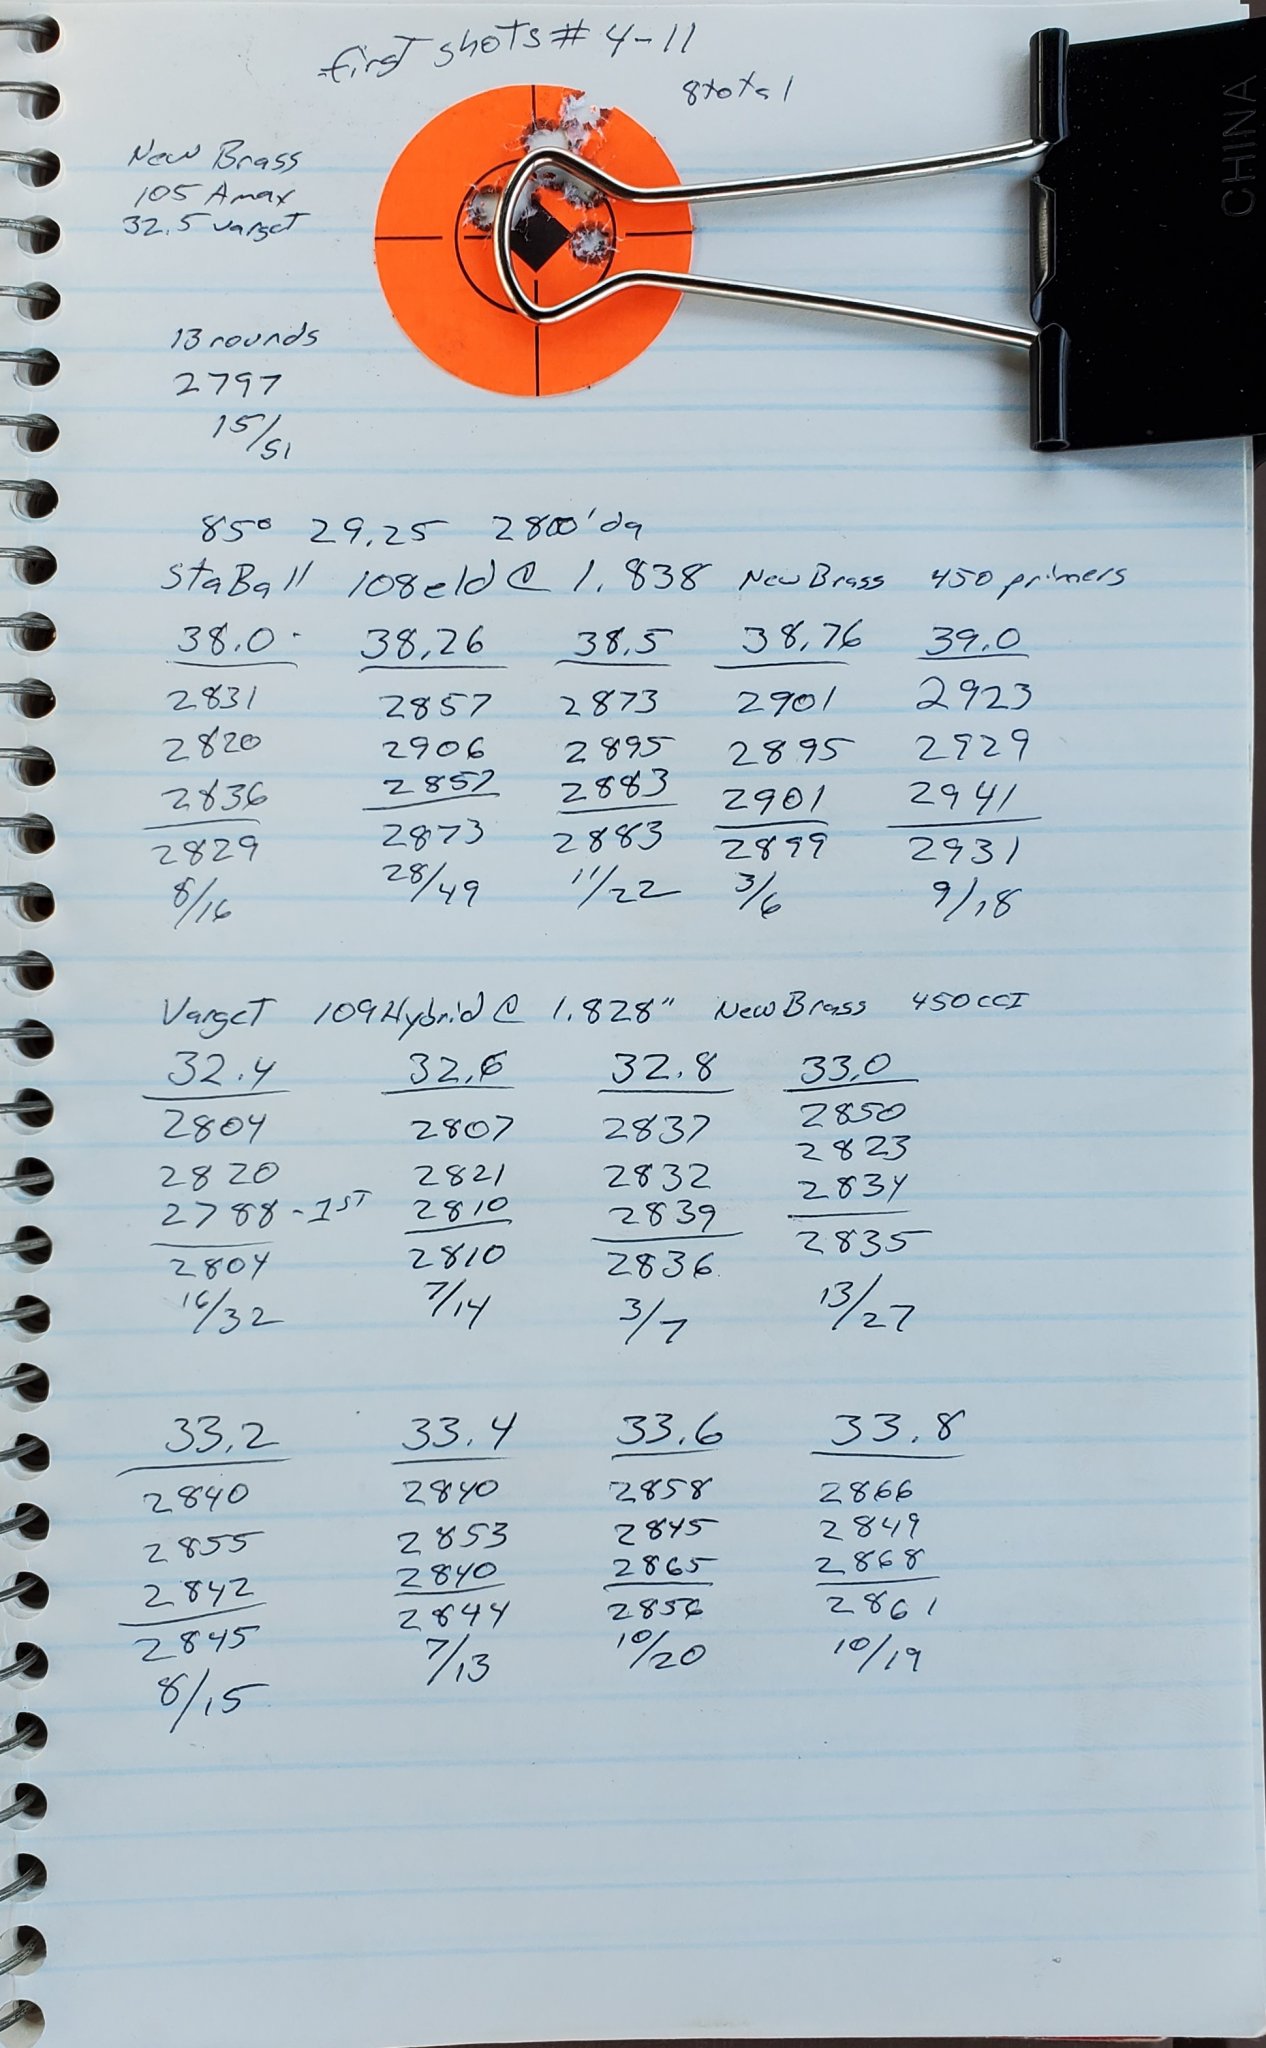 first shots # 4-11
8 total
New Brass
105 Amax
32.5 varget
13 rounds
2797
15/51
CHINA
85° 29.25 2800' da
StaBall 108 eld @ 1.838 New Brass 450 primers
38.0 38.26 38.5 38.76 39.0
2831 2857 2873 2901 2923
2820 2906 2895 2895 2929
2836 2857 2883 2901 2941
2829 2873 2883 2899 2931
8/16 28/49 11/22 3/6 9/18
Varget 109 Hybrid @ 1.828" New Brass 450 CCI
32.4 32.6 32.8 33.0
2804 2807 2837 2850
2820 2821 2832 2823
2788 - 1ST 2810 2839 2834
2804 2810 2836 2835
16/32 7/14 3/7 13/27
33.2 33.4 33.6 33.8
2840 2840 2858 2866
2855 2853 2845 2849
2842 2840 2865 2868
2845 2844 2856 2861
8/15 7/13 10/20 10/19